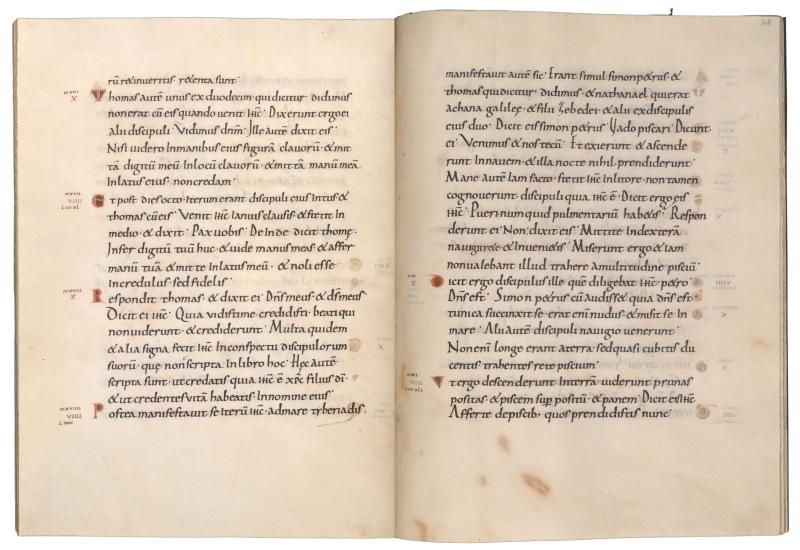 rū remiseritis retenta sunt·
Thomas autē unus ex duodecim· qui dicitur didimus
non erat cū eis quando uenit ihc· Dixerunt ergo ei
alii discipuli· Vidimus dnm̄· Ille autē dixit eis·
Nisi uidero Inmanibus eius figurā clauorū· & mit
tā digitū meū Inlocū clauorū· & mittā manū meā
Inlatus eius· non credam·
Et post dies octo· Iterum erant discipuli eius Intus &
thomas cū eis· Venit ihc Ianuis clausis· & stetit In
medio· & dixit· Pax uobis· Deinde dicit thomę·
Infer digitū tuū huc· & uide manus meas· & affer
manū tuā· & mitte Inlatus meū· & noli esse
Incredulus· sed fidelis·
Respondit thomas· & dixit ei· Dns̄ meus· & ds̄ meus·
Dicit ei ihc· Quia uidisti me credidisti· beati qui
non uiderunt· & crediderunt· Multa quidem
& alia signa fecit ihc Inconspectu discipulorum
suorū· quę non scripta Inlibro hoc· Hęc autē
scripta sunt· ut credatis quia ihc ē xpc filius dī·
& ut credentes uitā habeatis Innomine eius·
Postea manifestauit se iterū ihc· ad mare tyberiadis·
208
manifestauit autē sic· Erant simul simon petrus· &
thomas qui dicitur didimus· & nathanael qui erat
achana galileę· & filii zebedei· & alii ex discipulis
eius duo· Dicit eis simon petrus· Vado piscari· Dicunt
ei· Venimus & nos tecū· Et exierunt· & ascende
runt Innauem· & illa nocte nihil prendiderunt·
Mane autē Iam facto· stetit ihc Inlitore· non tamen
cognouerunt discipuli quia ihc ē· Dicit ergo eis
ihc· Pueri· numquid pulmentariū habetis· Respon
derunt ei· Non· dixit eis· Mittite Indexterā
nauigii rete· & Inuenietis· Miserunt ergo· & Iam
non ualebant illud trahere amultitudine pisciū·
Dicit ergo discipulus ille quē diligebat ihc· petro·
Dns̄ est· Simon petrus cū audisset quia dns̄ est·
tunica succinxit se· erat enī nudus· & misit se In
mare· Alii autē discipuli nauigio uenerunt·
Non enī longe erant aterra· sed quasi cubitis du
centis trahentes rete piscium·
Vt ergo descenderunt Interrā· uiderunt prunas
positas· & piscem sup positū· & panem· Dicit eis ihc·
Afferte depiscib· quos prendidistis nunc·